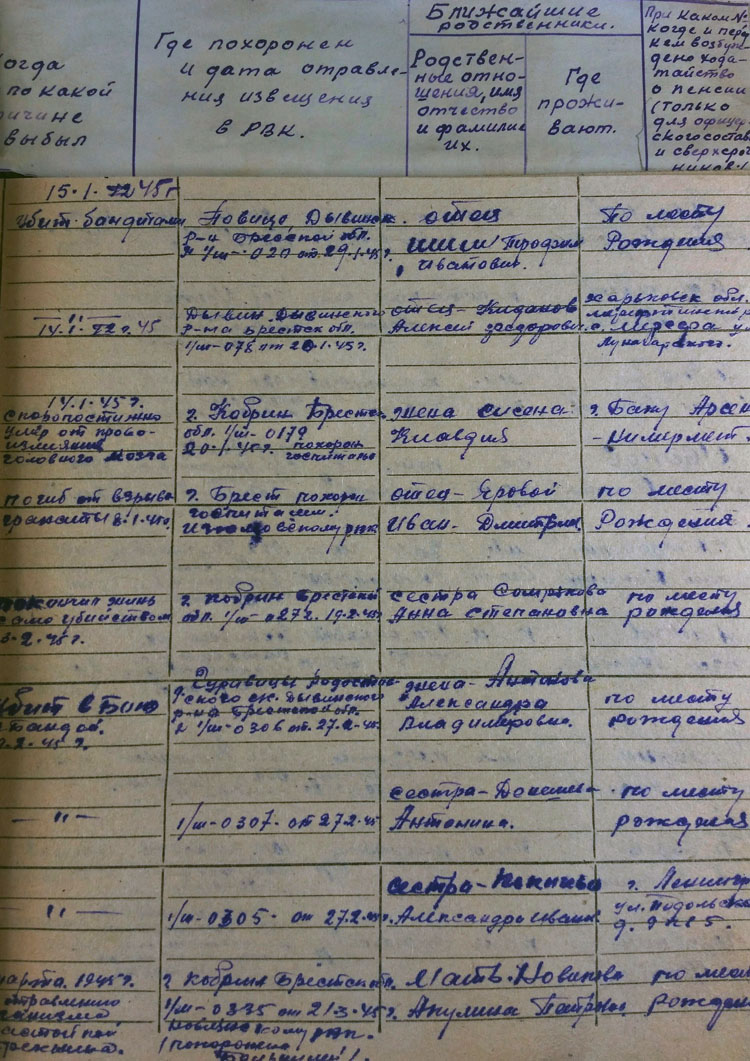 Когда
и по какой
причине
выбыл
Где похоронен
и дата отправле-
ния извещения
в РВК.
Ближайшие
родственники.
Родствен-
ные отно-
шения, имя
отчество
и фамилие
их.
Где
прожи-
вают.
При каком №
когда и перед
кем возбуж
дено хода-
тайство
о пенсии
(только
для офицер
ского состава
и сверхсроч
ников.)
15.1.45г
Убит бандитами
Повицо Дывинск.
р-н Брестской обл.
№ 1/ш-020 от 29.1.45г.
отец
Трофим
Иванович.
По месту
Рождения
— " —
14.1.45
Дывин Дывинского
р-на Брестск обл.
1/ш-078 от 20.1.45г.
отец-Жиданов
Алексей Федорович
Харьковск обл.
с. Мерефа ул
Луначарского.
14.1.45г.
скоропостижно
умер от крово-
излияния
головного мозга
г. Кобрин Брестс
обл. 1/ш-0179
20.1.45г. похорон
госпиталь
жена
Клавдия
г. Баку
погиб от взрыва
гранаты 8.1.45г.
г. Брест похорон
госпиталем.
рвк
отец-Яровой
Иван Дмитрие
по месту
Рождения.
покончил жизнь
самоубийством
2.45г.
г. Кобрин Брестской
обл. 1/ш-0272. 19.2.45г.
сестра
Анна Степановна
по месту
рождения
Убит в бою
с бандой.
2.45г.
ского с/с. Дывинского
р-на Брестской обл.
№ 1/ш-0306 от. 27.2.45.
жена-Антипова
Александра
Владимировна.
по месту
рождения
— " —
1/ш-0307. от 27.2.45
сестра-
Антонина.
по месту
рождения
— " —
1/ш-0305. от 27.2.45г.
сестра-
Александра Иван
г. Ленинград
ул. Подольская
д.
марта. 1945г.
отравлению
организма
г. Кобрин Брестск обл.
1/ш-0335 от 21.3.45г.
рвк.
/похоронен
Мать. Новикова
Акулина Петров
по мест
Рождения